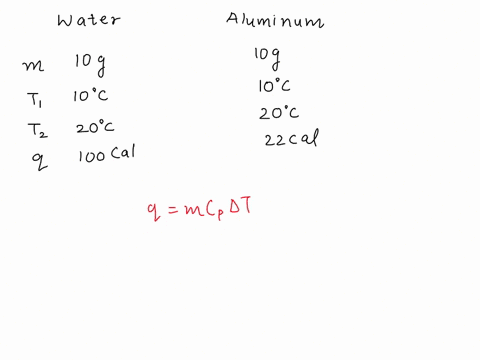 Water Aluminum
m 10g 10g
T₁ 10°C 10°C
T₂ 20°C 20°C
q 100 Cal 22 Cal
q = m Cₚ ΔT